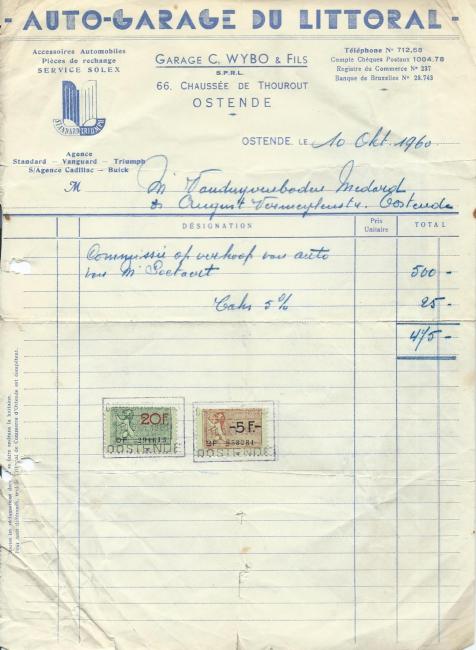 - AUTO-GARAGE DU LITTORAL -
Accessoires Automobiles
Pièces de rechange
SERVICE SOLEX
STANDARD TRIUMPH
Agence
Standard - Vanguard - Triumph
S/Agence Cadillac - Buick
GARAGE C. WYBO & FILS
S.P.R.L.
66, CHAUSSÉE DE THOUROUT
OSTENDE
Téléphone N° 712,58
Compte Chèques Postaux 1004.78
Registre du Commerce N° 237
Banque de Bruxelles N° 28.743
OSTENDE, LE 10 Okt. 1960
M Mr Vanduyverboden Medard
August Vermeylenstr. Oostende
DÉSIGNATION
Prix Unitaire
TOTAL
Commissie op verkoop van auto
van Mr 500 -
Taks 5% 25 -
475 -
20F
OOSTENDE
-5F-
OOSTENDE